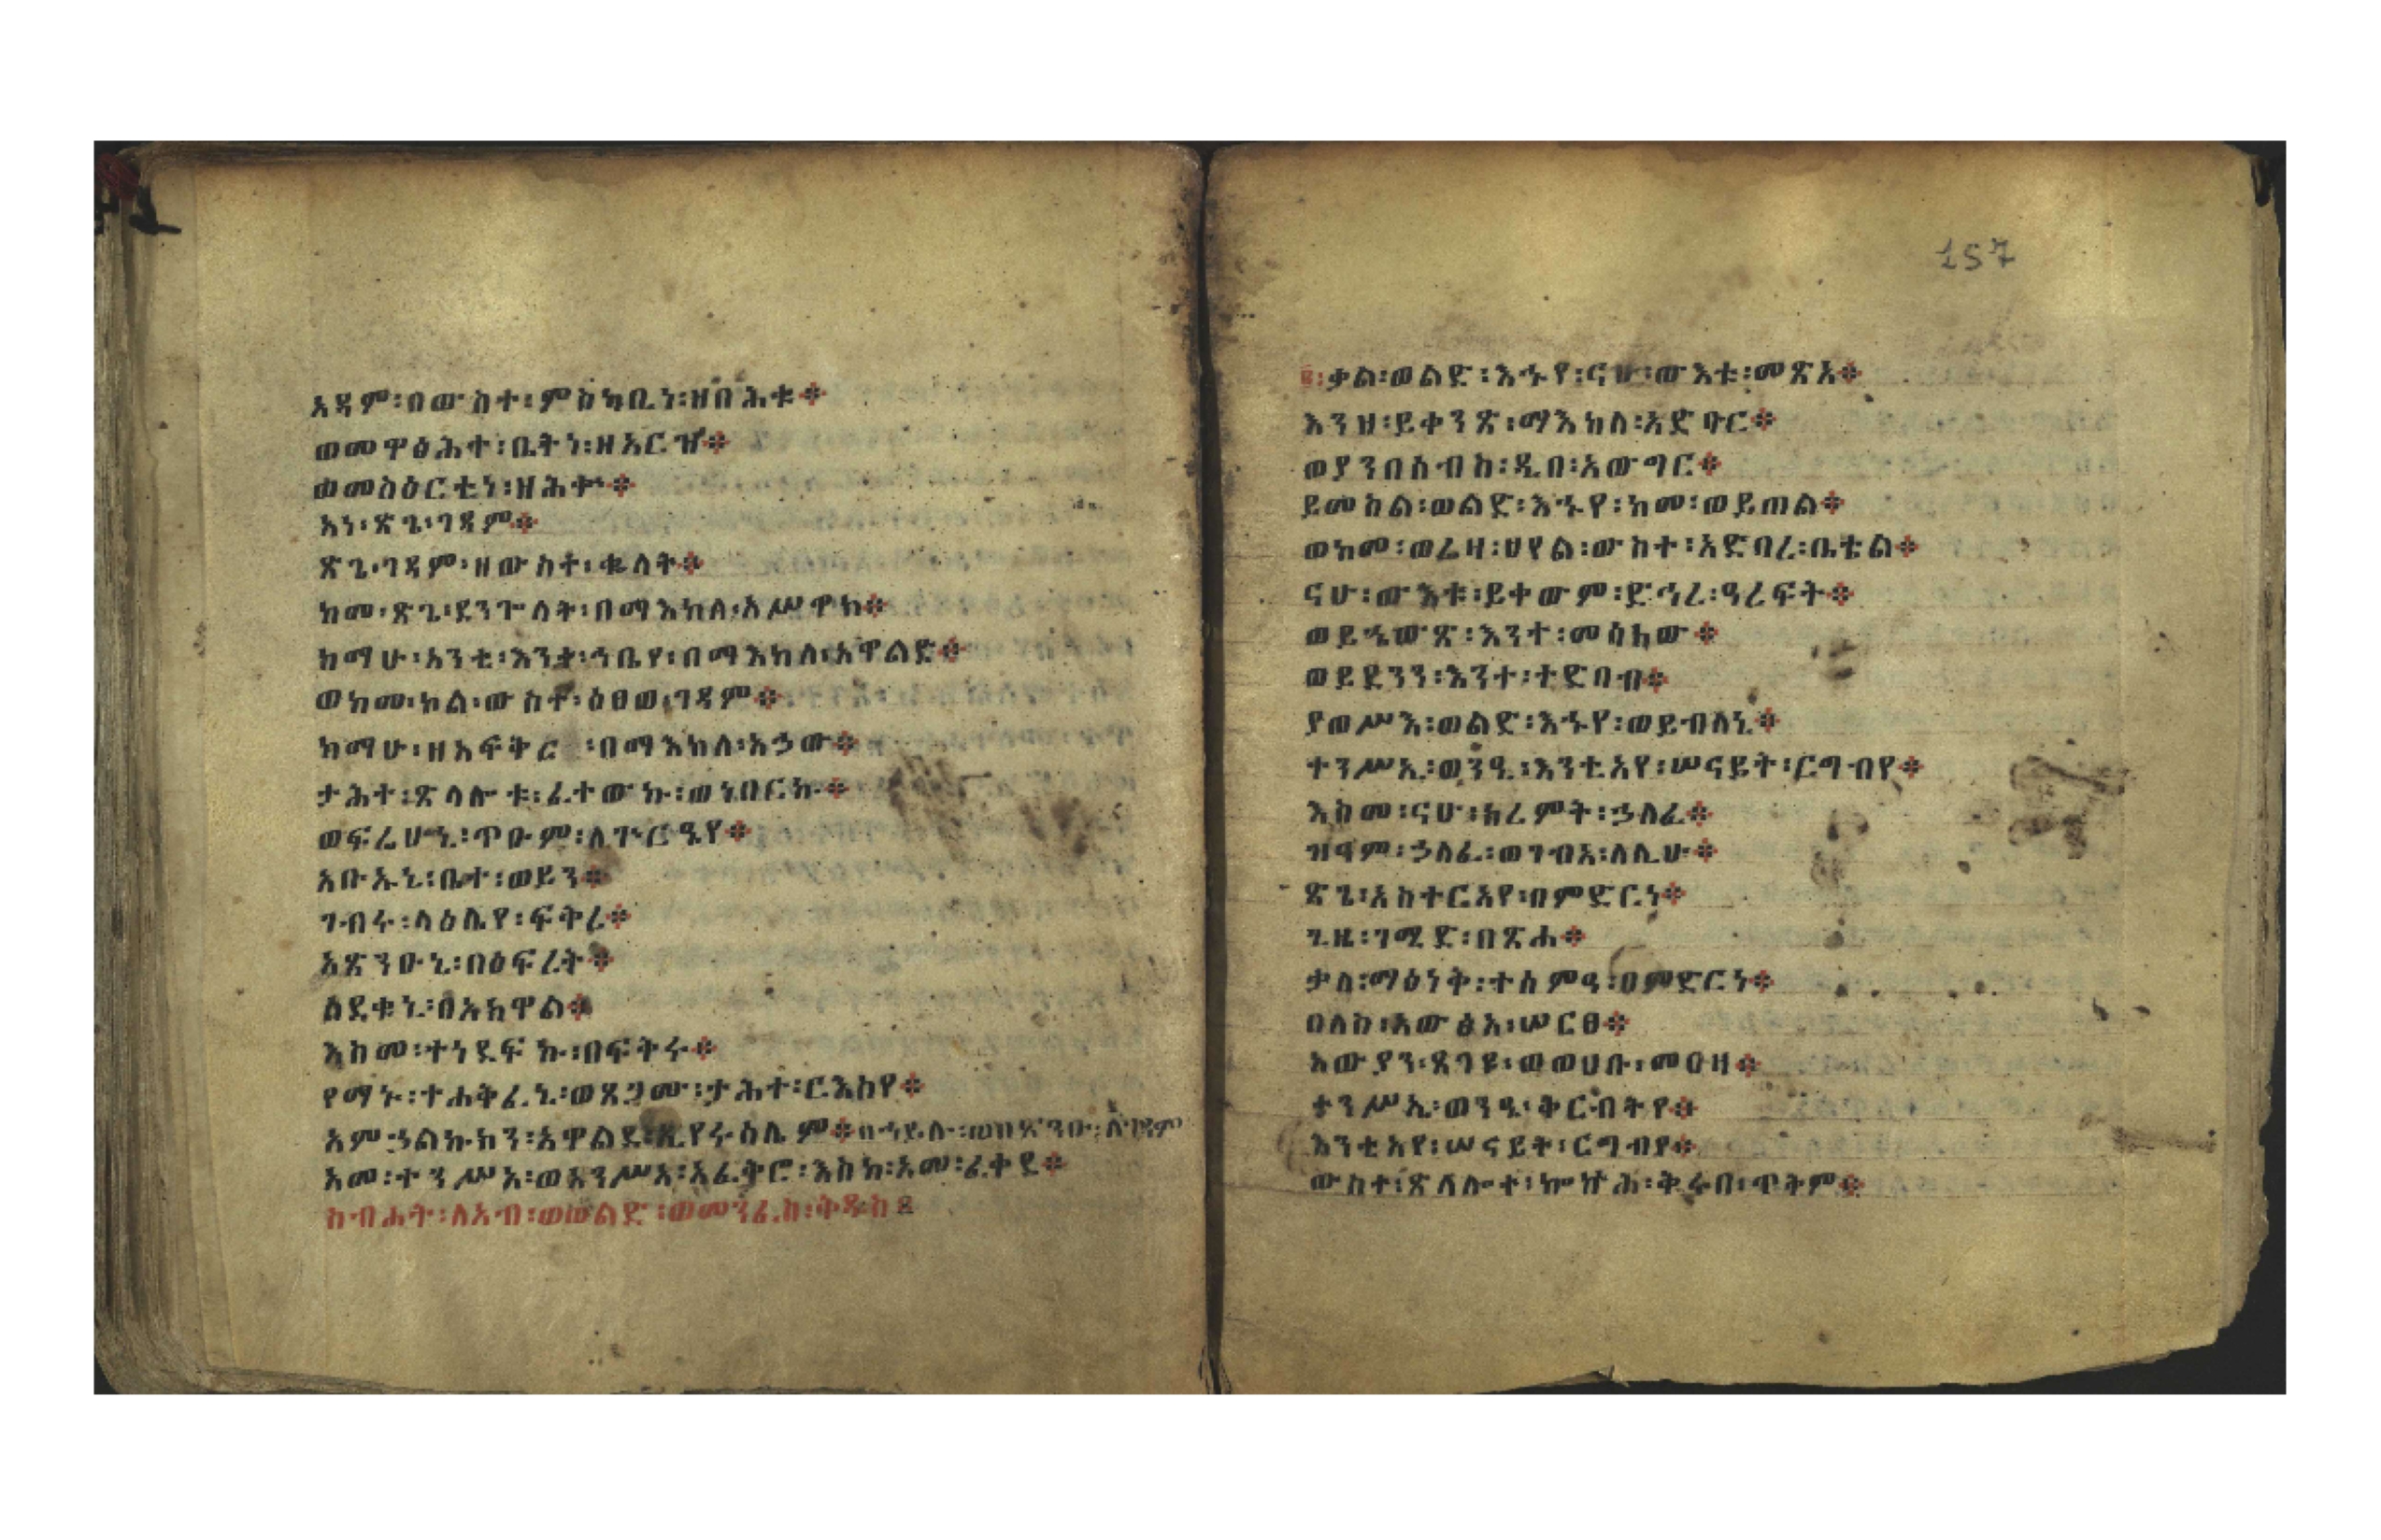 አዳም፡በውስተ፡ምስካቢነ፡ዘበሕቱ፨
ወመዋፅሕተ፡ቤትነ፡ዘአርዝ፨
ወመስዕርቲነ፡ዘሕቍ፨
አነ፡ጽጌ፡ገዳም፨
ጽጌ፡ገዳም፡ዘውስተ፡ቈላት፨
ከመ፡ጽጌ፡ደንጐላት፡በማእከለ፡አሥዋክ፨
ከማሁ፡አንቲ፡እንቲ፡ኀቤየ፡በማእከለ፡አዋልድ፨
ወከመ፡ኮል፡ውስተ፡ዕፀወ፡ገዳም፨
ከማሁ፡ዘአፍቅር ፡በማእከለ፡አኃው፨
ታሕተ፡ጽላሎቱ፡ፈተውኩ፡ወነበርኩ፨
ወፍሬሁኒ፡ጥዑም፡ለጕርዔየ፨
አቡኡኒ፡ቤተ፡ወይን፨
ግብሩ፡ላዕሌየ፡ፍቅረ፨
አጽንዑኒ፡በዕፍረት፨
ዕደቁኒ፡በአክዋል፨
እስመ፡ተነደፍኩ፡በፍቅሩ፨
የማኑ፡ተሐቅፈኒ፡ወጸጋሙ፡ታሕተ፡ርእስየ፨
አምኃልኩክን፡አዋልደ፡ኢየሩሳሌም፨በኀይሉ፡ወበጽንዑ፡ለገዳም
እመ፡ተንሥአ፡ወአንሥአ፡አፈቅሮ፡እስከ፡አመ፡ፈቀደ፨
ስብሐት፡ለአብ፡ወወልድ፡ወመንፈስ፡ቅዱስ፤
157
ቃል፡ወልድ፡እኁየ፡ናሁ፡ውእቱ፡መጽአ፨
እንዘ፡ይቀንጽ፡ማእከለ፡አድባር፨
ወያንበሰብስ፡ዲበ፡አውግር፨
ይመስል፡ወልድ፡እኁየ፡ከመ፡ወይጠል፨
ወከመ፡ወሬዛ፡ሀየል፡ውስተ፡አድባረ፡ቤቴል፨
ናሁ፡ውእቱ፡ይቀውም፡ድኅረ፡ዓረፍት፨
ወይኄውጽ፡እንተ፡መስኮው፨
ወይደንን፡እንተ፡ተድባብ፨
ያወሥእ፡ወልድ፡እኁየ፡ወይብለኒ፨
ተንሥኢ፡ወንዒ፡እንቲአየ፡ሠናይት፡ርግብየ፨
እስመ፡ናሁ፡ክረምት፡ኃለፈ፨
ዝናም፡ኃለፈ፡ወገብአ፡ለሊሁ፨
ጽጌ፡አስተርአየ፡በምድርነ፨
ጊዜ፡ገሚድ፡በጽሐ፨
ቃለ፡ማዕነቅ፡ተሰምዓ፡በምድርነ፨
በለስ፡አውፅአ፡ሠርፀ፨
አውያን፡ጸገዩ፡ወወሀቡ፡መዐዛ፨
ተንሥኢ፡ወንዒ፡ቅርብትየ፨
እንቲአየ፡ሠናይት፡ርግብየ፨
ውስተ፡ጽላሎተ፡ኰኵሕ፡ቅሩበ፡ጥቅም፨